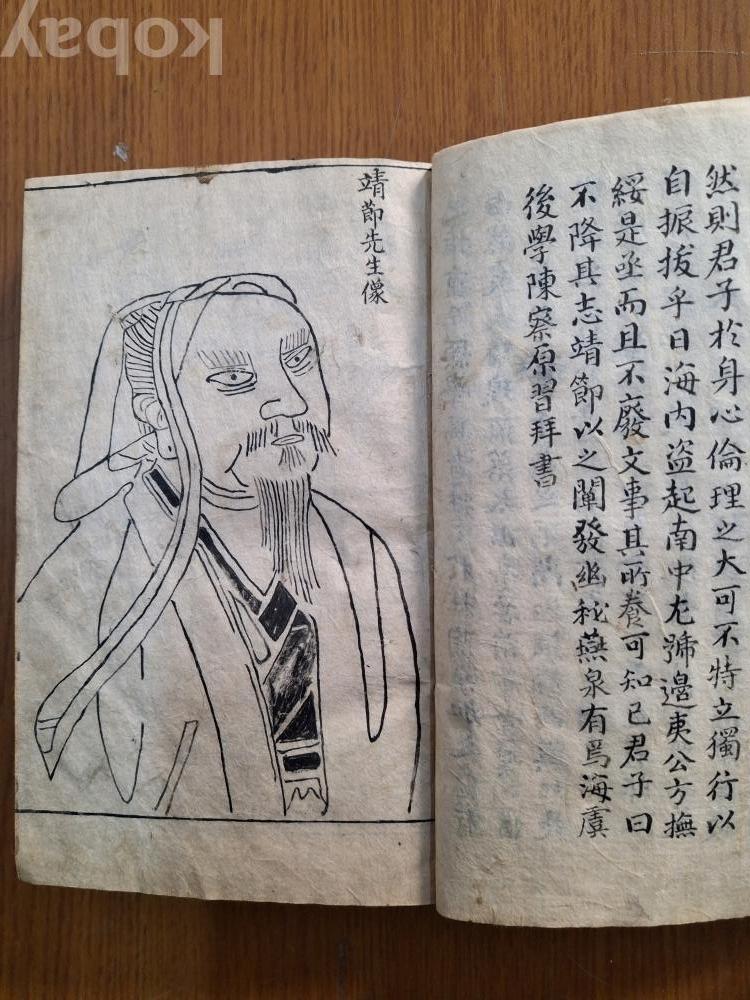 然則君子於身心倫理之大可不特立獨行以
自振拔乎日海内盜起南中尤號邊夷公方撫
綏是亟而且不廢文事其所養可知已君子曰
不降其志靖節以之闡發幽秘燕泉有焉海虞
後學陳察原習拜書
靖節先生像
kobay